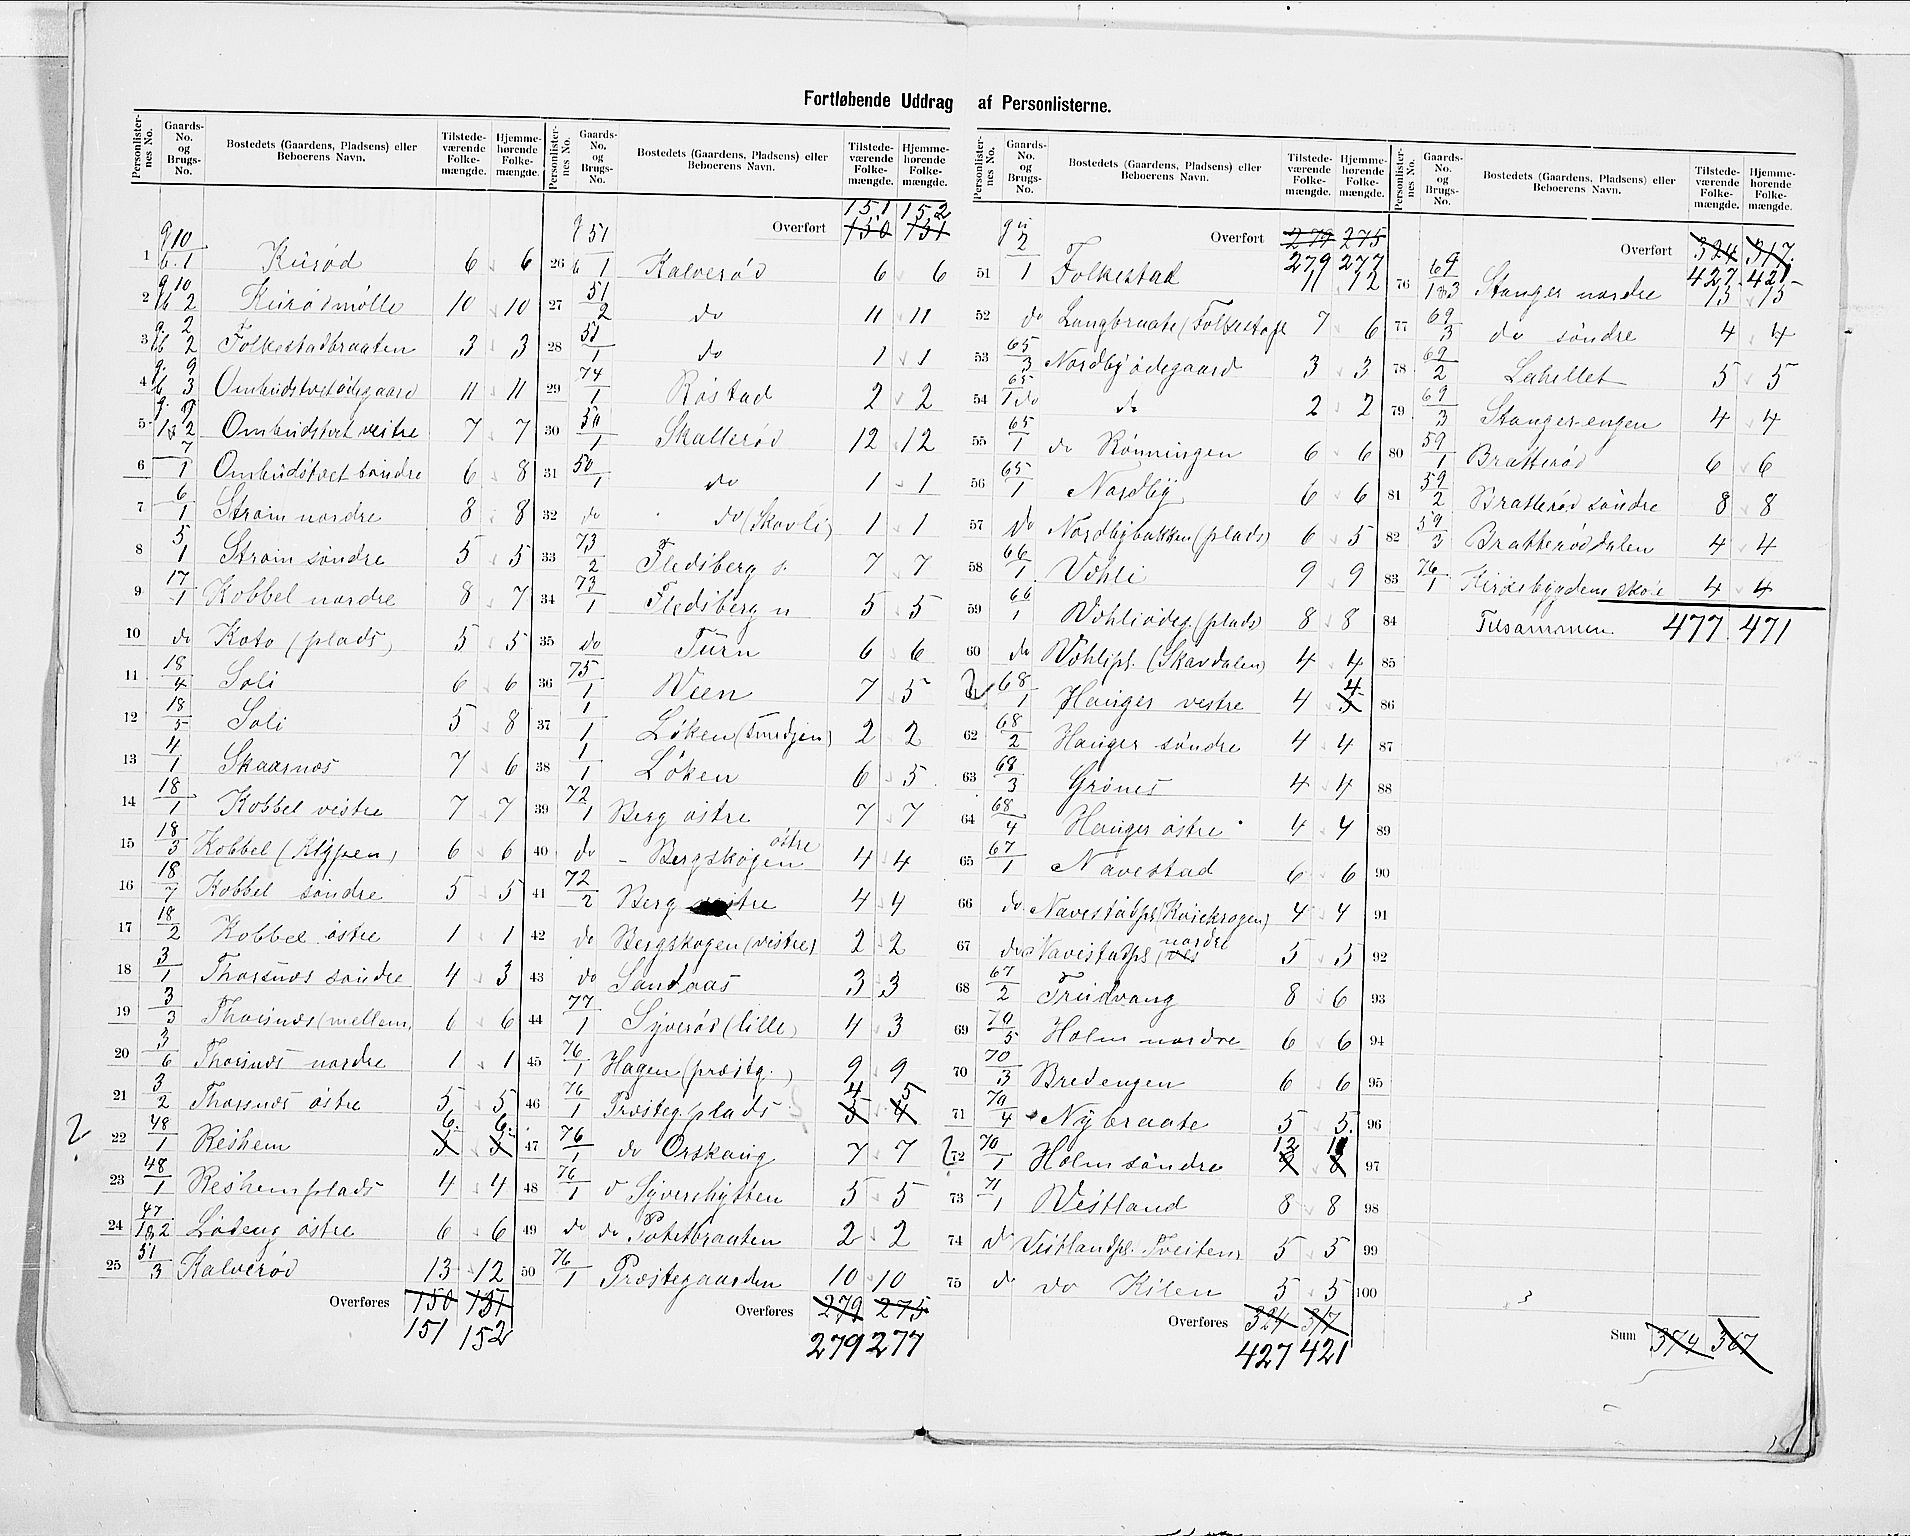 Fortløbende Uddrag af Personlisterne.
Personlister-nes No. Gaards-No. og Brugs-No. Bostedets (Gaardens, Pladsens) eller Beboerens Navn. Tilstede-værende Folke-mængde. Hjemme-hørende Folke-mængde.
1 g 10 b. 1 Kirrød 6 6
2 g 10 b 2 Kirrødmölle 10 10
3 g. 2 b 2 Folkestadbraaten 3 3
4 g. 9 b 3 Ombudstvetödegaard 11 11
5 g. 7 1&2 Ombudstvet vestre 7 7
6 7/1 Ombudstvet söndre 6 8
7 6/1 Strøm nordre 8 8
8 5/1 Strøm söndre 5 5
9 17/1 Kobbel nordre 8 7
10 do Koto (plads) 5 5
11 18/4 Soli 6 6
12 18/5 Soli 5 8
13 4/1 Skaarnæs 7 6
14 18/1 Kobbel vestre 7 7
15 18/3 Kobbel (Klypen) 6 6
16 18/7 Kobbel söndre 5 5
17 18/2 Kobbel östre 1 1
18 3/1 Thorsnæs söndre 4 3
19 3/3 Thorsnæs (mellem) 6 6
20 3/6 Thorsnæs nordre 1 1
21 3/2 Thorsnæs östre 5 5
? 22 48/1 Rishem 6. 6.
23 48/1 Rishemplads 4 4
24 47/1&2 Lödeng östre 6 6
25 51/3 Kalverød 13 12
Overføres 150 151
151 152
Personlister-nes No. Gaards-No. og Brugs-No. Bostedets (Gaardens, Pladsens) eller Beboerens Navn. Tilstede-værende Folke-mængde. Hjemme-hørende Folke-mængde.
151 152
Overført 150 151
26 g 51 b 1 Kalverød 6 6
27 51/2 do 11 11
28 51/1 do 1 1
29 74/1 Röstad 2 2
30 50/1 Skallerød 12 12
31 50/1 do 1 1
32 do do (Skovli) 1 1
33 73/2 Fledsberg s. 7 7
34 73/1 Fledsberg n 5 5
35 do Turn 6 6
36 75/1 Wien 7 5
37 1/1 Løken (Smedjen) 2 2
38 1/1 Løken 6 5
39 72/1 Berg östre 7 7
40 do - Bergskogen östre 4 4
41 72/2 Berg vestre 4 4
42 do Bergskogen (vistre) 2 2
43 do Sandaas 3 3
44 77/1 Syverød (lille) 4 3
45 76/1 Hagen (præstg.) 9 9
4 5
46 76/1 Præsteg.plads 5 4
47 76/1 do Orskaug 7 7
48 76/1 d Syvershytten 5 5
49 do do Potetbraaten 2 2
50 76/1 Præstegaarden 10 10
Overføres 279 275
279 277
Personlister-nes No. Gaards-No. og Brugs-No. Bostedets (Gaardens, Pladsens) eller Beboerens Navn. Tilstede-værende Folke-mængde. Hjemme-hørende Folke-mængde.
Overført 279 275
279 277
51 2/1 Folkestad 11 12
52 do Langbraate (Folkestad) 7 6
53 65/3 Nordby ödegaard 3 3
54 65/1 do do 2 2
55 65/1 do Rønningen 6 6
56 65/1 Nordby 6 6
57 do Nordbybakken (plads) 6 5
58 66/1 Vohli 9 9
59 66/1 Vohliödeg. (plads) 8 8
60 do Vohlipl. (Skavdalen) 4 4
? 61 68/1 Hauger vestre 4 4
62 68/2 Hauger söndre 4 4
63 68/3 Grönes 4 4
64 68/4 Hauger östre 4 4
65 67/1 Navestad 6 6
66 do Navestadpl. (Kasekrogen) 4 4
67 do Navestadpl. (nordre 5 5
68 67/2 Trudvang 8 6
69 70/5 Holm nordre 6 6
70 70/3 Bredengen 6 6
71 70/4 Nybraate 5 5.
12 11
? 72 70/1 Holm söndre 9 8
73 71/1 Westland 8 8
74 d Vestlandpl. Tveiten 5 5
75 d do Kilen 5 5
Overføres 324 317
427 421
Personlister-nes No. Gaards-No. og Brugs-No. Bostedets (Gaardens, Pladsens) eller Beboerens Navn. Tilstede-værende Folke-mængde. Hjemme-hørende Folke-mængde.
Overført 324 317.
427 421
76 69/1&3 Stanger nordre 15 15
77 69/3 do söndre 4 4
78 69/2 Labillet 5 5
79 69/3 Stanger-engen 4 4
80 59/1 Bratterød 6 6
81 59/2 Bratterød söndre 8 8
82 59/3 Bratterøddalen 4 4
83 76/1 Kirkebygdens skole 4 4
84 Tilsammen 477 471
85
86
87
88
89
90
91
92
93
94
95
96
97
98
99
100
3
Sum 374 367